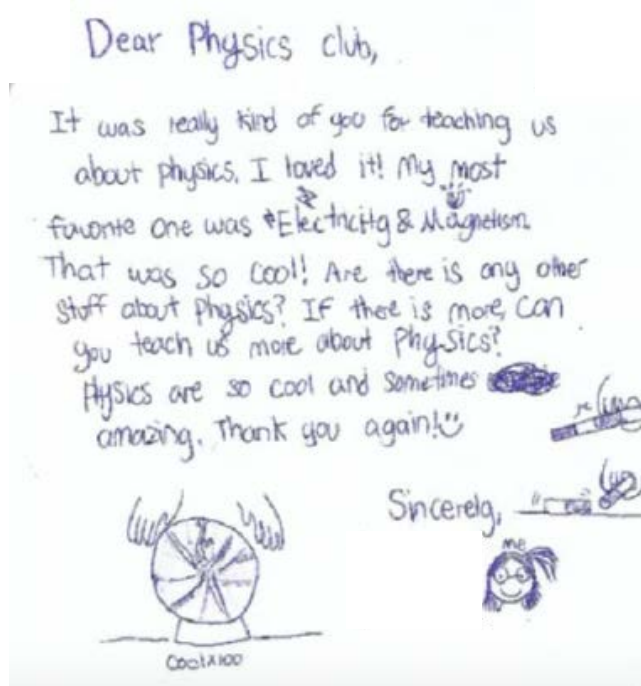 Dear Physics club,
It was really kind of you for teaching us
about physics. I loved it! My most
favorite one was Electricity & Magnetism
That was so cool! Are there is any other
stuff about physics? If there is more, can
you teach us more about Physics?
Physics are so cool and sometimes
amazing. Thank you again!
Sincerely,
me
Coolx100